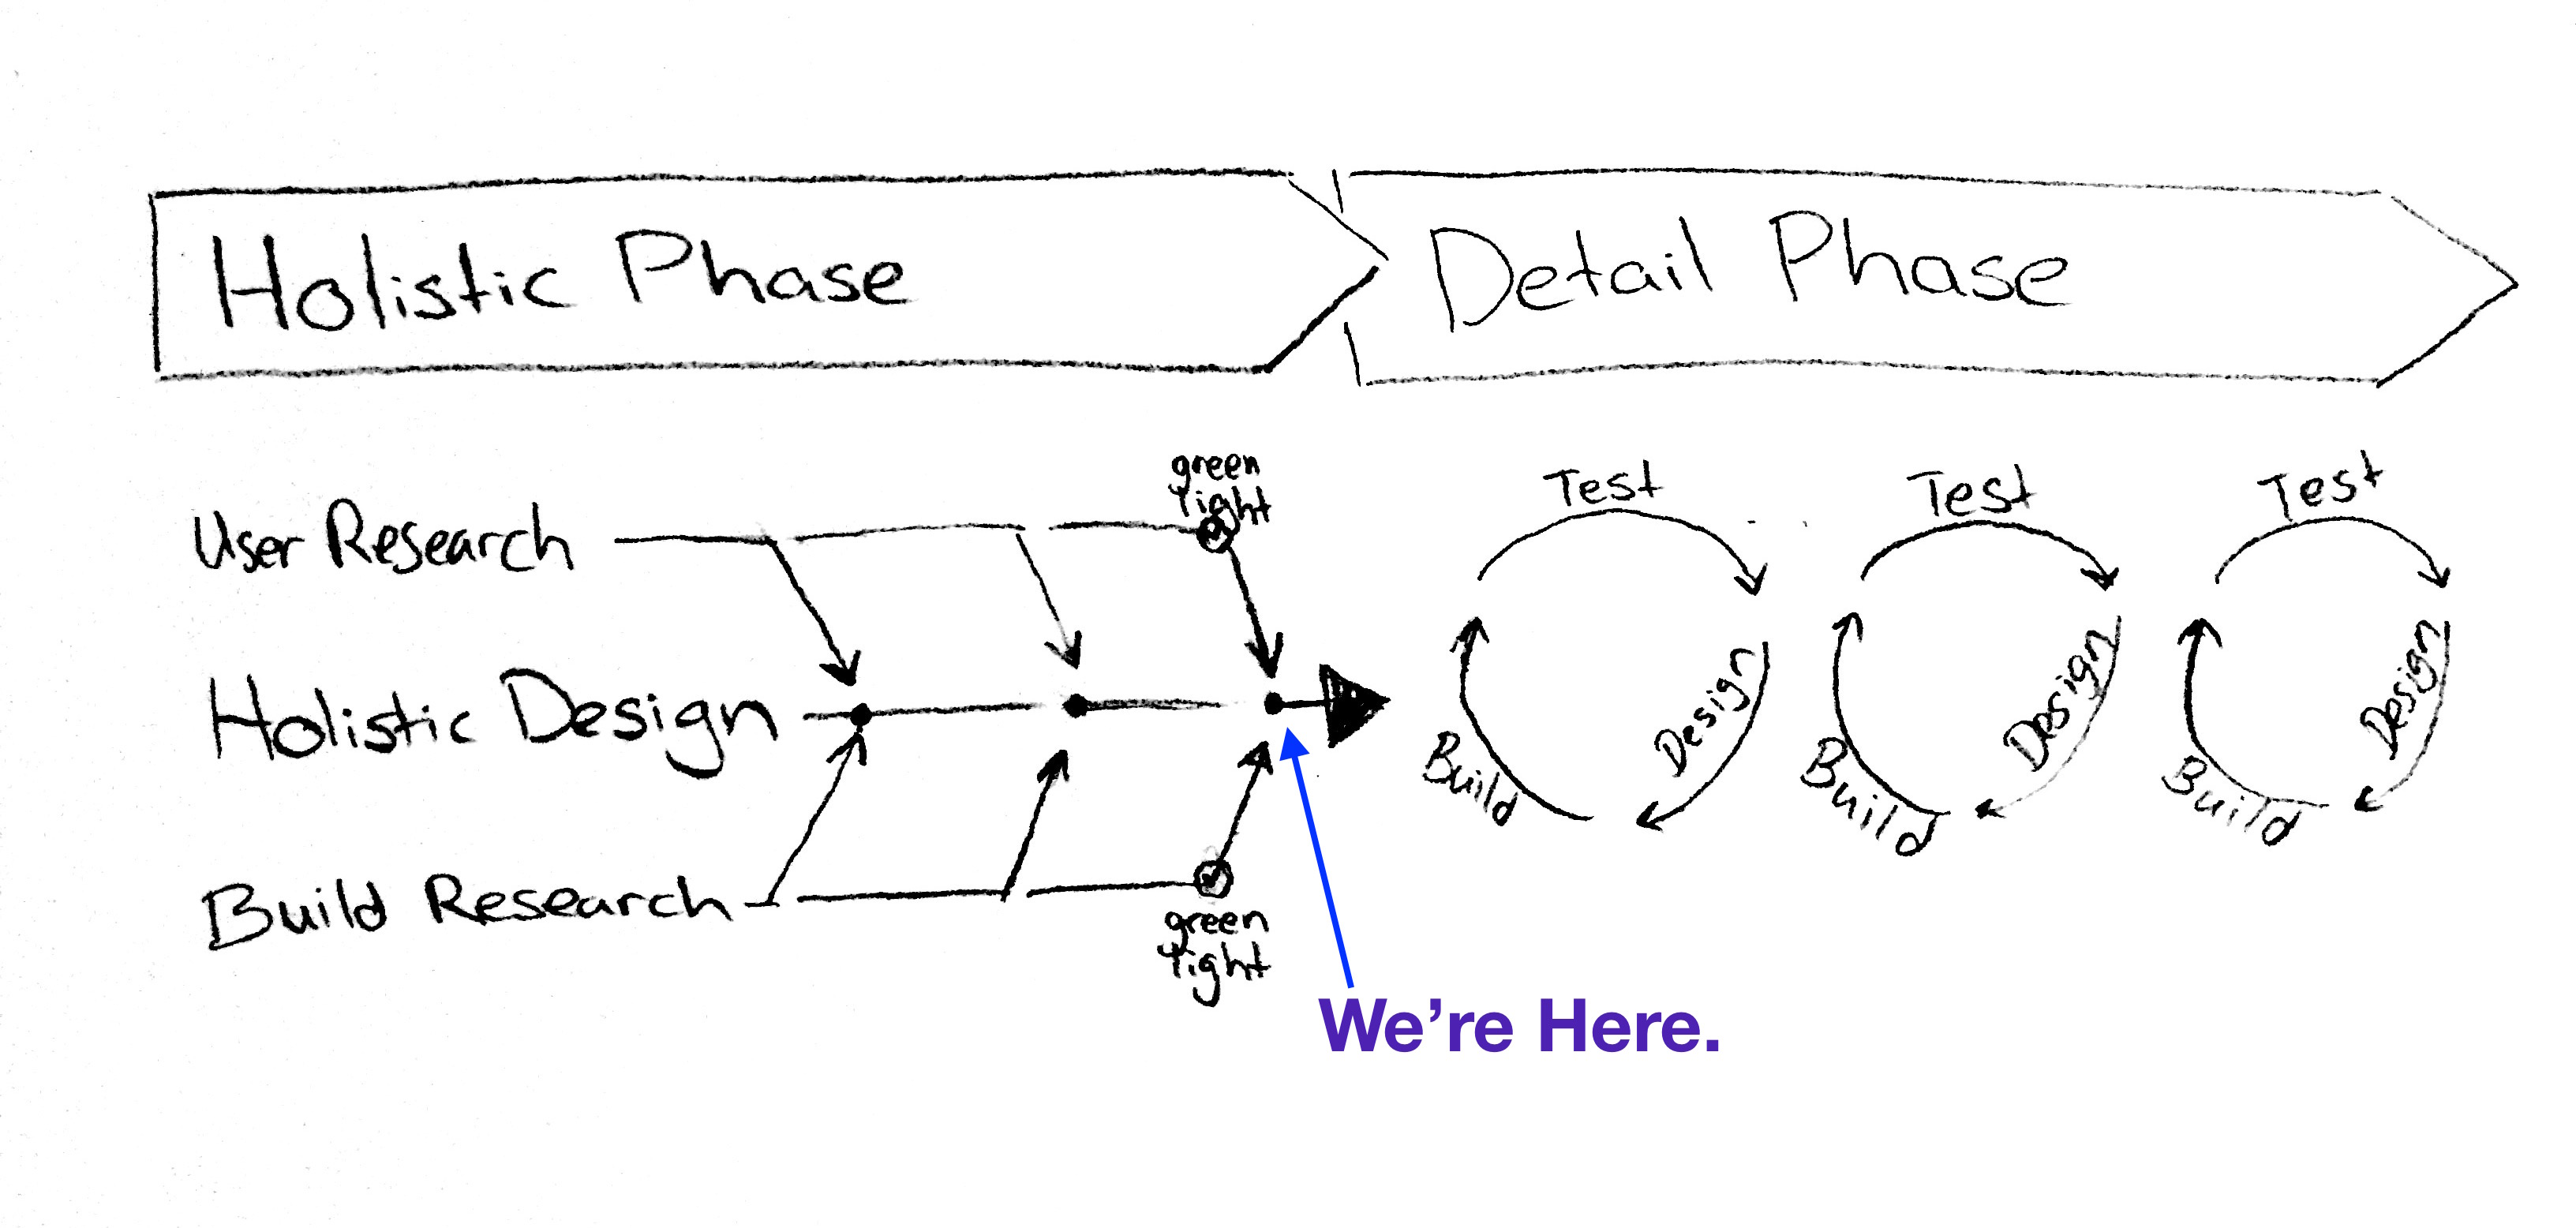 Holistic Phase
Detail Phase
User Research
green
light
Holistic Design
Build Research
green
light
Test
Design
Build
Test
Design
Build
Test
Design
Build
We’re Here.